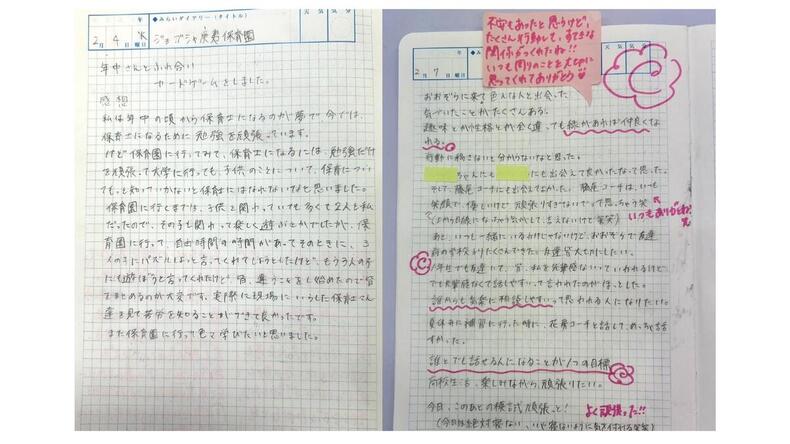 年
2月4日 水曜日
◆みらいダイアリー(タイトル)
天気 気分
ジョブシャ 保育園
年中さんとふれ合い
カードゲームをしました。
感想
私は年中の頃から保育士になるのが夢で今では、
保育士になるために勉強を頑張っています。
けど保育園に行ってみて、保育士になるには、勉強だけ
を頑張って大学に行っても、子供のことについて、保育につい
てもっと知っていかないと保育士にはなれないなと思いました。
保育園に行くまでは、子供と関わっていても多くて2人と私
だったので、その子も関わって楽しく遊ぶとかでしたが、保
育園に行って、自由時間の時間があってそのときに、3
人の子にパズルしよっと言ってくれてしようとしたけど、もう1人の子
にも遊ぼうと言ってくれたけど、皆、違うことをし始めたので皆
をまとめるのが大変で、実際に現場にいらした保育士さん
達を見て苦労を知ることができて良かったです。
また保育園に行って色々学びたいと思いました。
不安もあったと思うけど、
たくさん行動して、すてきな
関係がつくれたね!!
いつも周りのことを大切に
思ってくれてありがとう
2月7日 曜日
おおぞらに来て色んな人と出会った。
気づいたことがたくさんある。
趣味とか性格とかが全く違っても縁があれば仲良くな
れる。
行動に移さないと分からないなと思った。
ちゃんにも にも出会えて良かったなって思った。
そして、藤尾コーチにも出会えてよかった。藤尾コーチは、いつも
笑顔で、優しいけど頑張りすぎないでって思っちゃう笑
いつもありがとね!
あと、いつも一緒にいるわけじゃないけど、おおぞらで友達
前の学校よりたくさんできた。友達皆大切にしたい。
1年生でも友達いて、皆、私を先輩感ないっていわれるけど
でも先輩感なくて話しやすいって言われたのがほっとした。
誰からも気楽に相談しやすいって思われる人になりたい。
夏休みに補習に行った時に、花房コーチと話して、めっちゃ話
すかった。
誰とでも話せる人になることが1つの目標
高校生活、楽しみながら、頑張りたい。
今日、このあとの模試頑張って!
よく頑張った!!
(今日は絶対寝ない、いや寝ないように気を付ける笑笑)